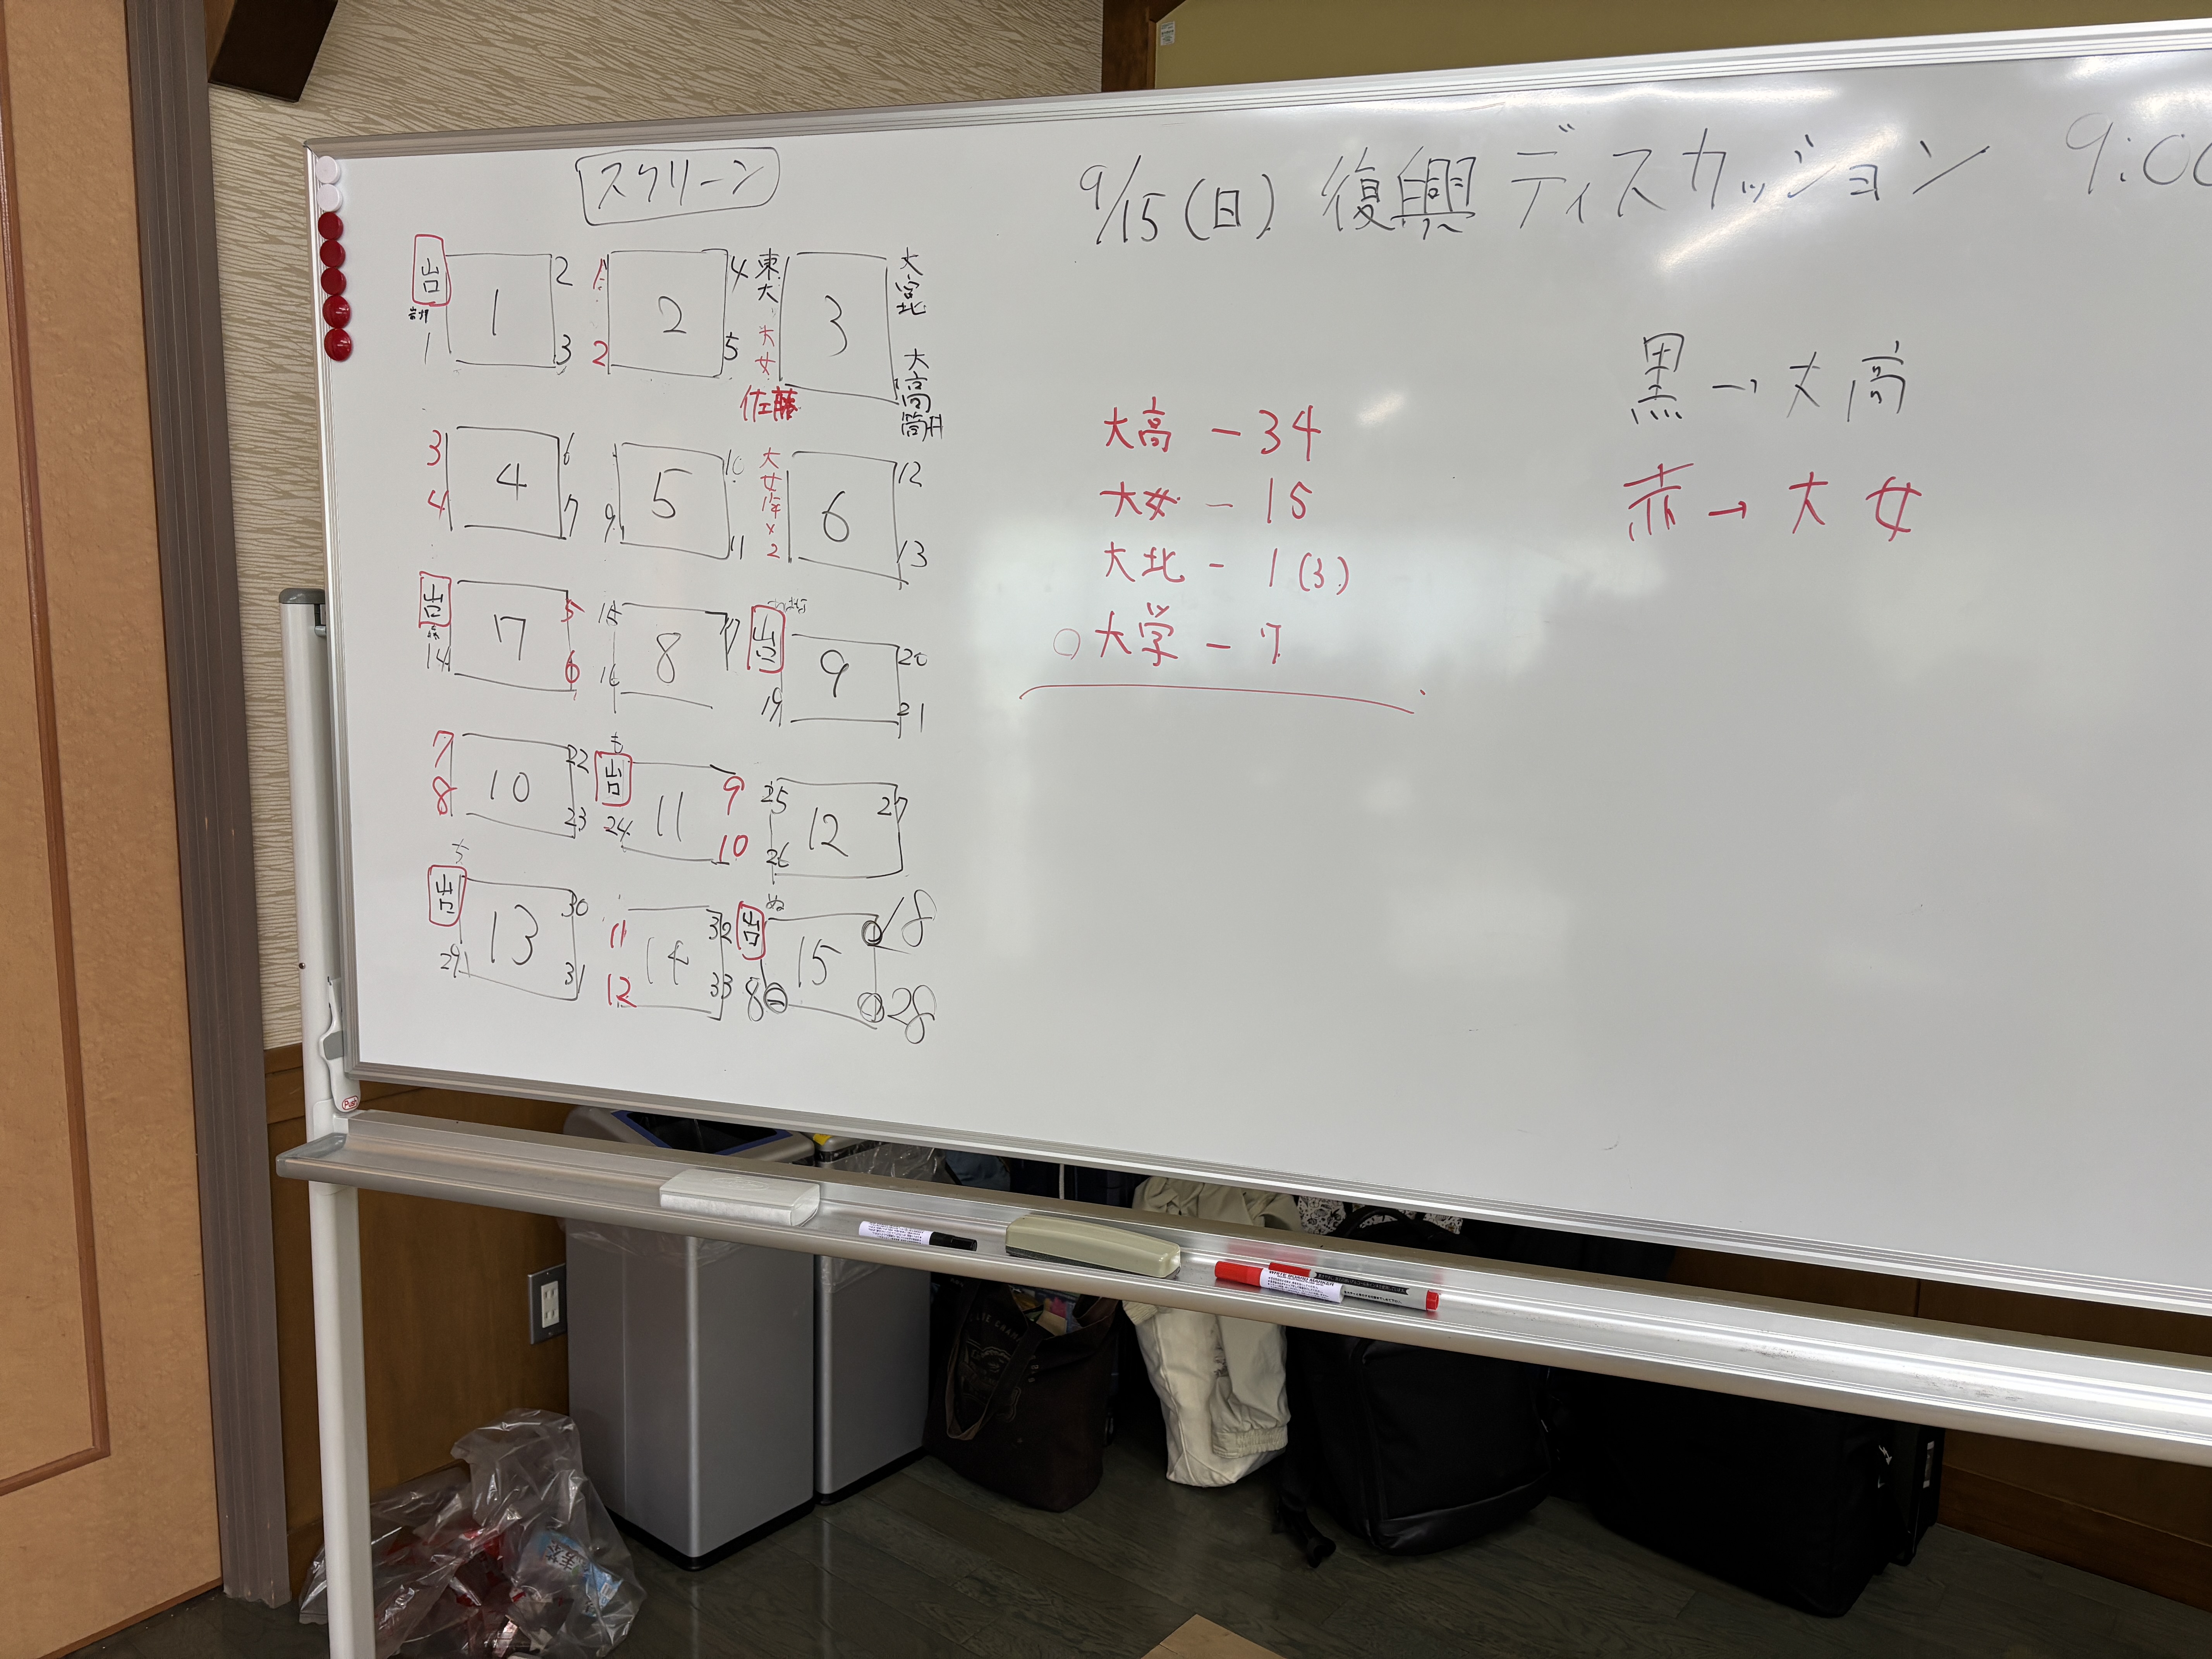 スクリーン
9/15(日) 復興 ディスカッション 9:00
台 1 2 1 4 東大 3 大宮北
1 3 2 2 5 大女 大高
佐藤 筒井
3 4 6 10 大女1年×2 12
4 7 9 5 11 6 13
台 7 5 15 8 17 台 9 20
14 6 16 19 21
7 10 22 も 台 11 9 25 12 27
8 23 24 10 26
ち 台 13 30 11 14 32 ぬ 台 15 18
29 31 12 33 8 28
大高 - 34
大女 - 15
大北 - 1(3)
○大学 - 7
黒→大高
赤→大女
Push